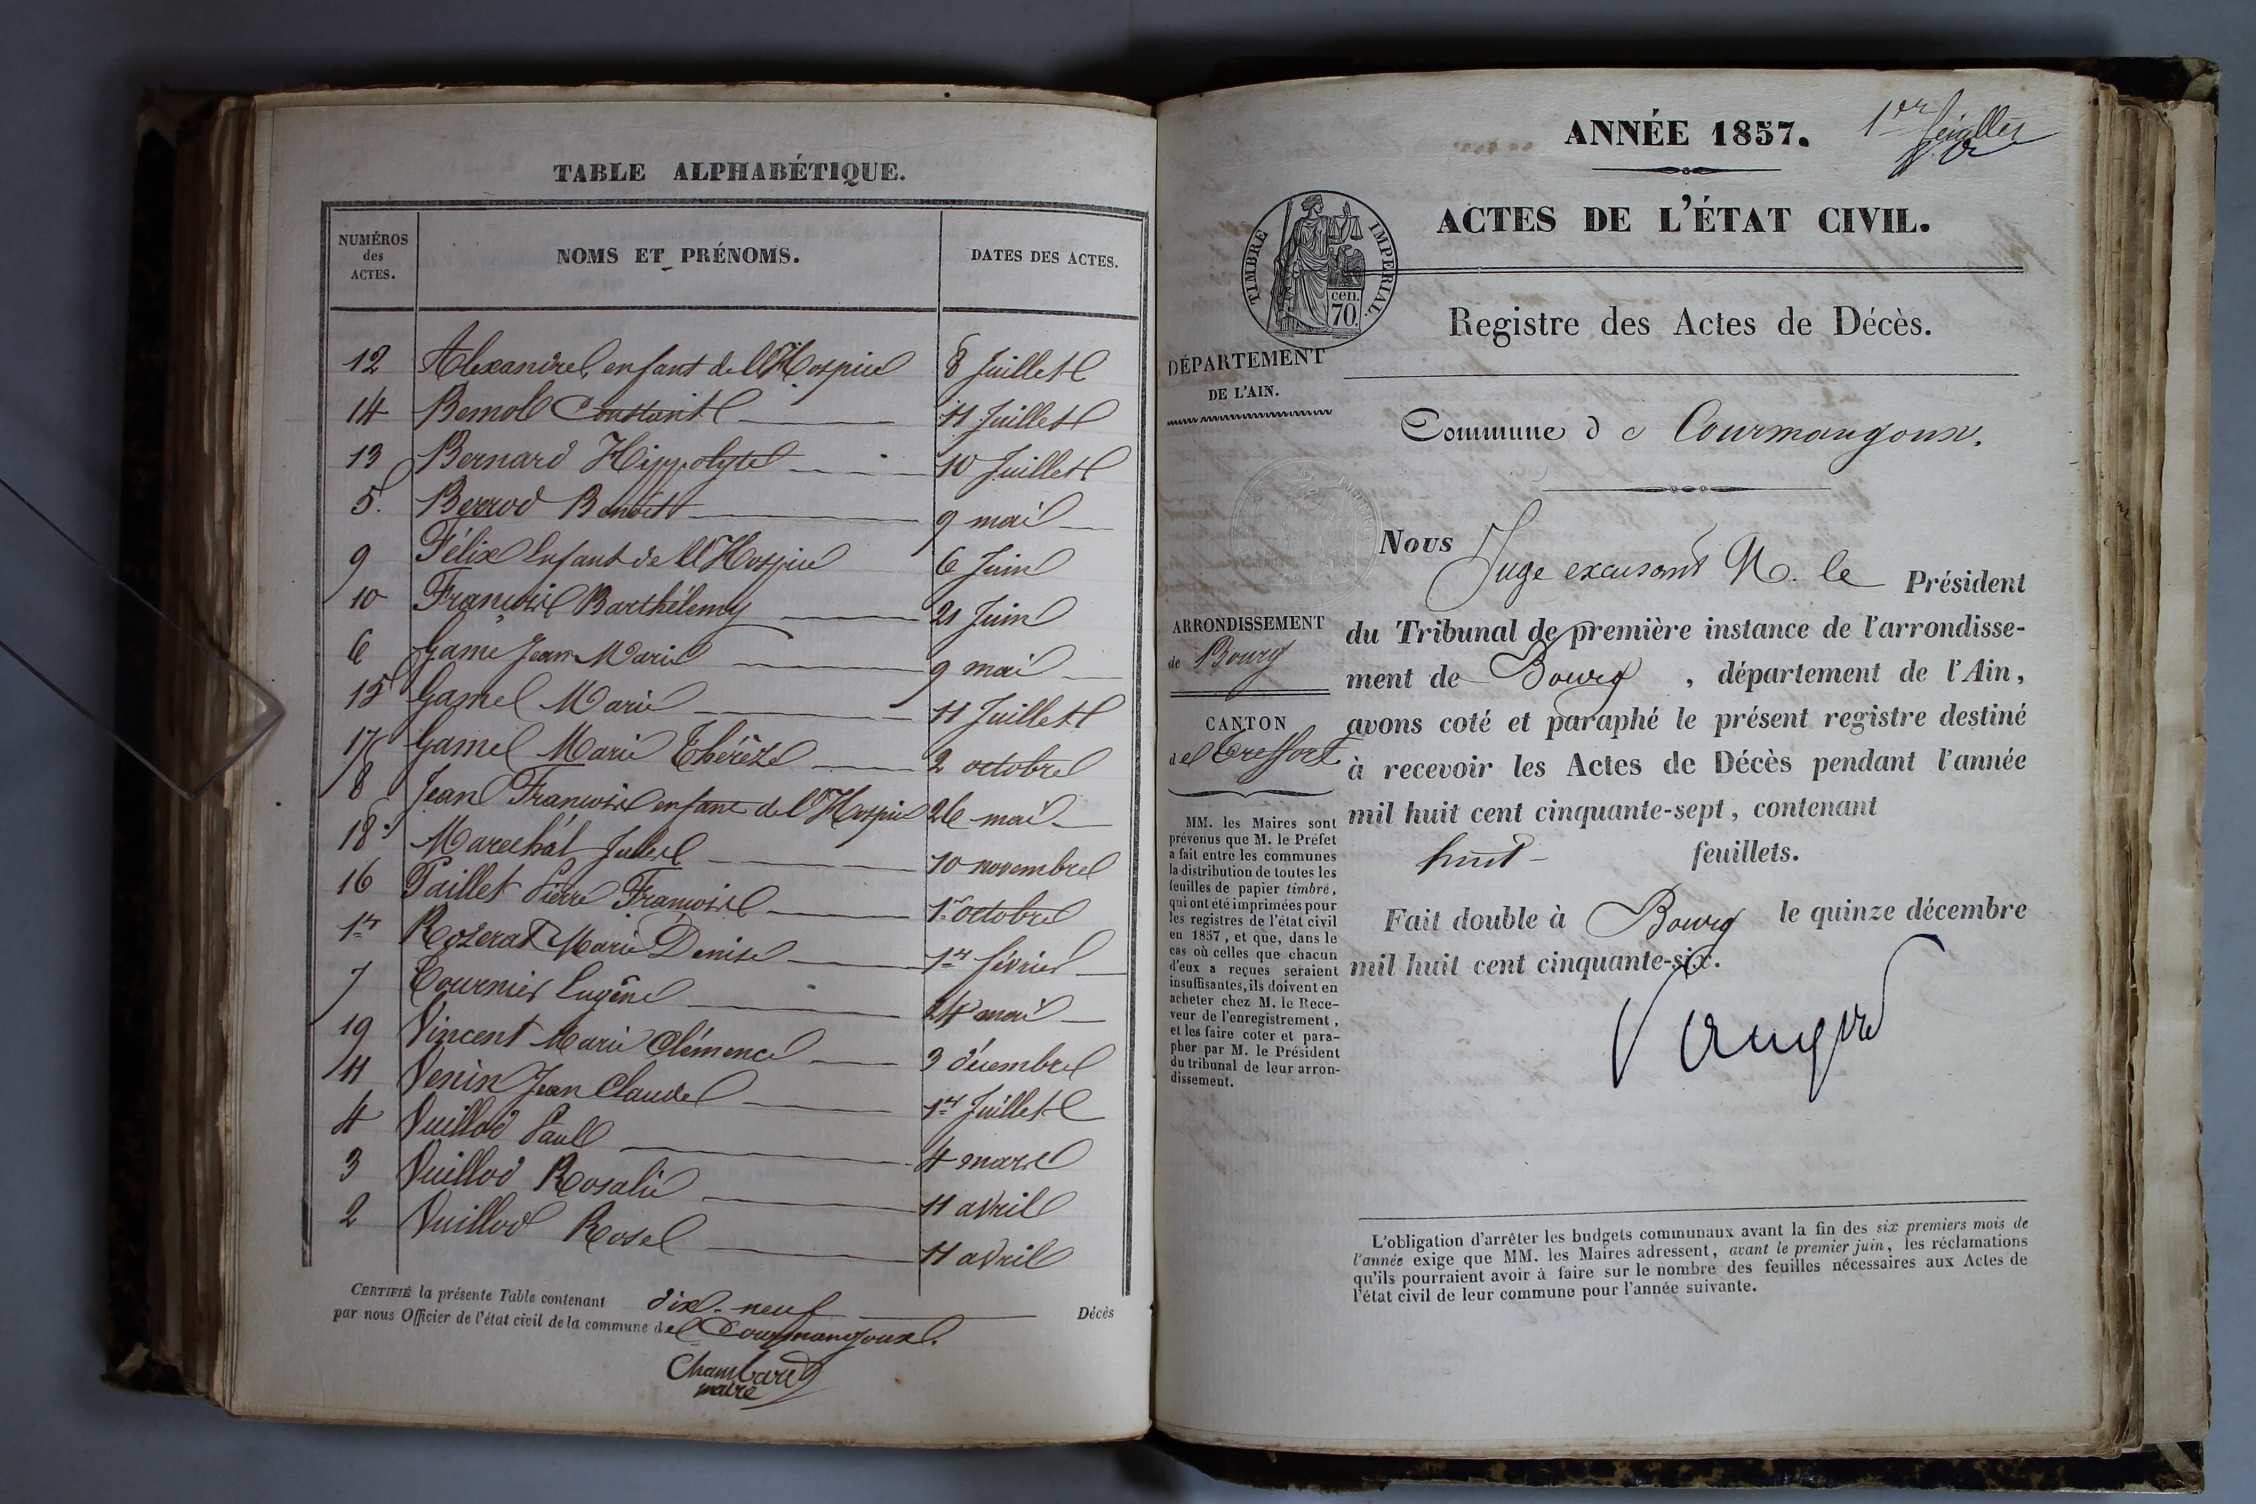 TABLE ALPHABÉTIQUE.
NUMÉROS
des
ACTES.
NOMS ET PRÉNOMS.
DATES DES ACTES.
12 Alexandre, enfant de l'Hospice 8 Juillet
14 Bernol Constant 11 Juillet
13 Bernard Hippolyte 10 Juillet
5. Berrod Benoît 9 mai
9 Félix Enfant de l'Hospice 6 Juin
10 François Barthélemy 21 Juin
6 Game Jean Marie 9 mai
15 Game Marie 11 Juillet
17 Game Marie Thérèze 2 octobre
8 Jean François enfant de l'Hospice 26 mai
18 Marechal Jules 10 novembre
16 Paillet Pierre François 1er octobre
1er Rozerat Marie Denise 1er février
7 Tournier Eugène 24 mai
19 Vincent Marie Clémence 3 décembre
11 Venin Jean Claude 1er Juillet
4 Vuillod Paul 4 mars
3 Vuillod Rosalie 11 avril
2 Vuillod Rose 11 avril
CERTIFIÉ la présente Table contenant dix-neuf Décès
par nous Officier de l'état civil de la commune de Courmangoux.
Chambard
maire
ANNÉE 1857.
1er feuillet
ACTES DE L'ÉTAT CIVIL.
TIMBRE IMPERIAL.
cen.
70.
Registre des Actes de Décès.
DÉPARTEMENT
DE L'AIN.
Commune de Courmangoux.
Nous Juge excusant M. le Président
du Tribunal de première instance de l'arrondisse-
ment de Bourg, département de l'Ain,
avons coté et paraphé le présent registre destiné
à recevoir les Actes de Décès pendant l'année
mil huit cent cinquante-sept, contenant
huit feuillets.
Fait double à Bourg le quinze décembre
mil huit cent cinquante-six.
ARRONDISSEMENT
de Bourg
CANTON
de Treffort
MM. les Maires sont
prévenus que M. le Préfet
a fait entre les communes
la distribution de toutes les
feuilles de papier timbré,
qui ont été imprimées pour
les registres de l'état civil
en 1857, et que, dans le
cas où celles que chacun
d'eux a reçues seraient
insuffisantes, ils doivent en
acheter chez M. le Rece-
veur de l'enregistrement,
et les faire coter et para-
pher par M. le Président
du tribunal de leur arron-
dissement.
L'obligation d'arrêter les budgets communaux avant la fin des six premiers mois de
l'année exige que MM. les Maires adressent, avant le premier juin, les réclamations
qu'ils pourraient avoir à faire sur le nombre des feuilles nécessaires aux Actes de
l'état civil de leur commune pour l'année suivante.